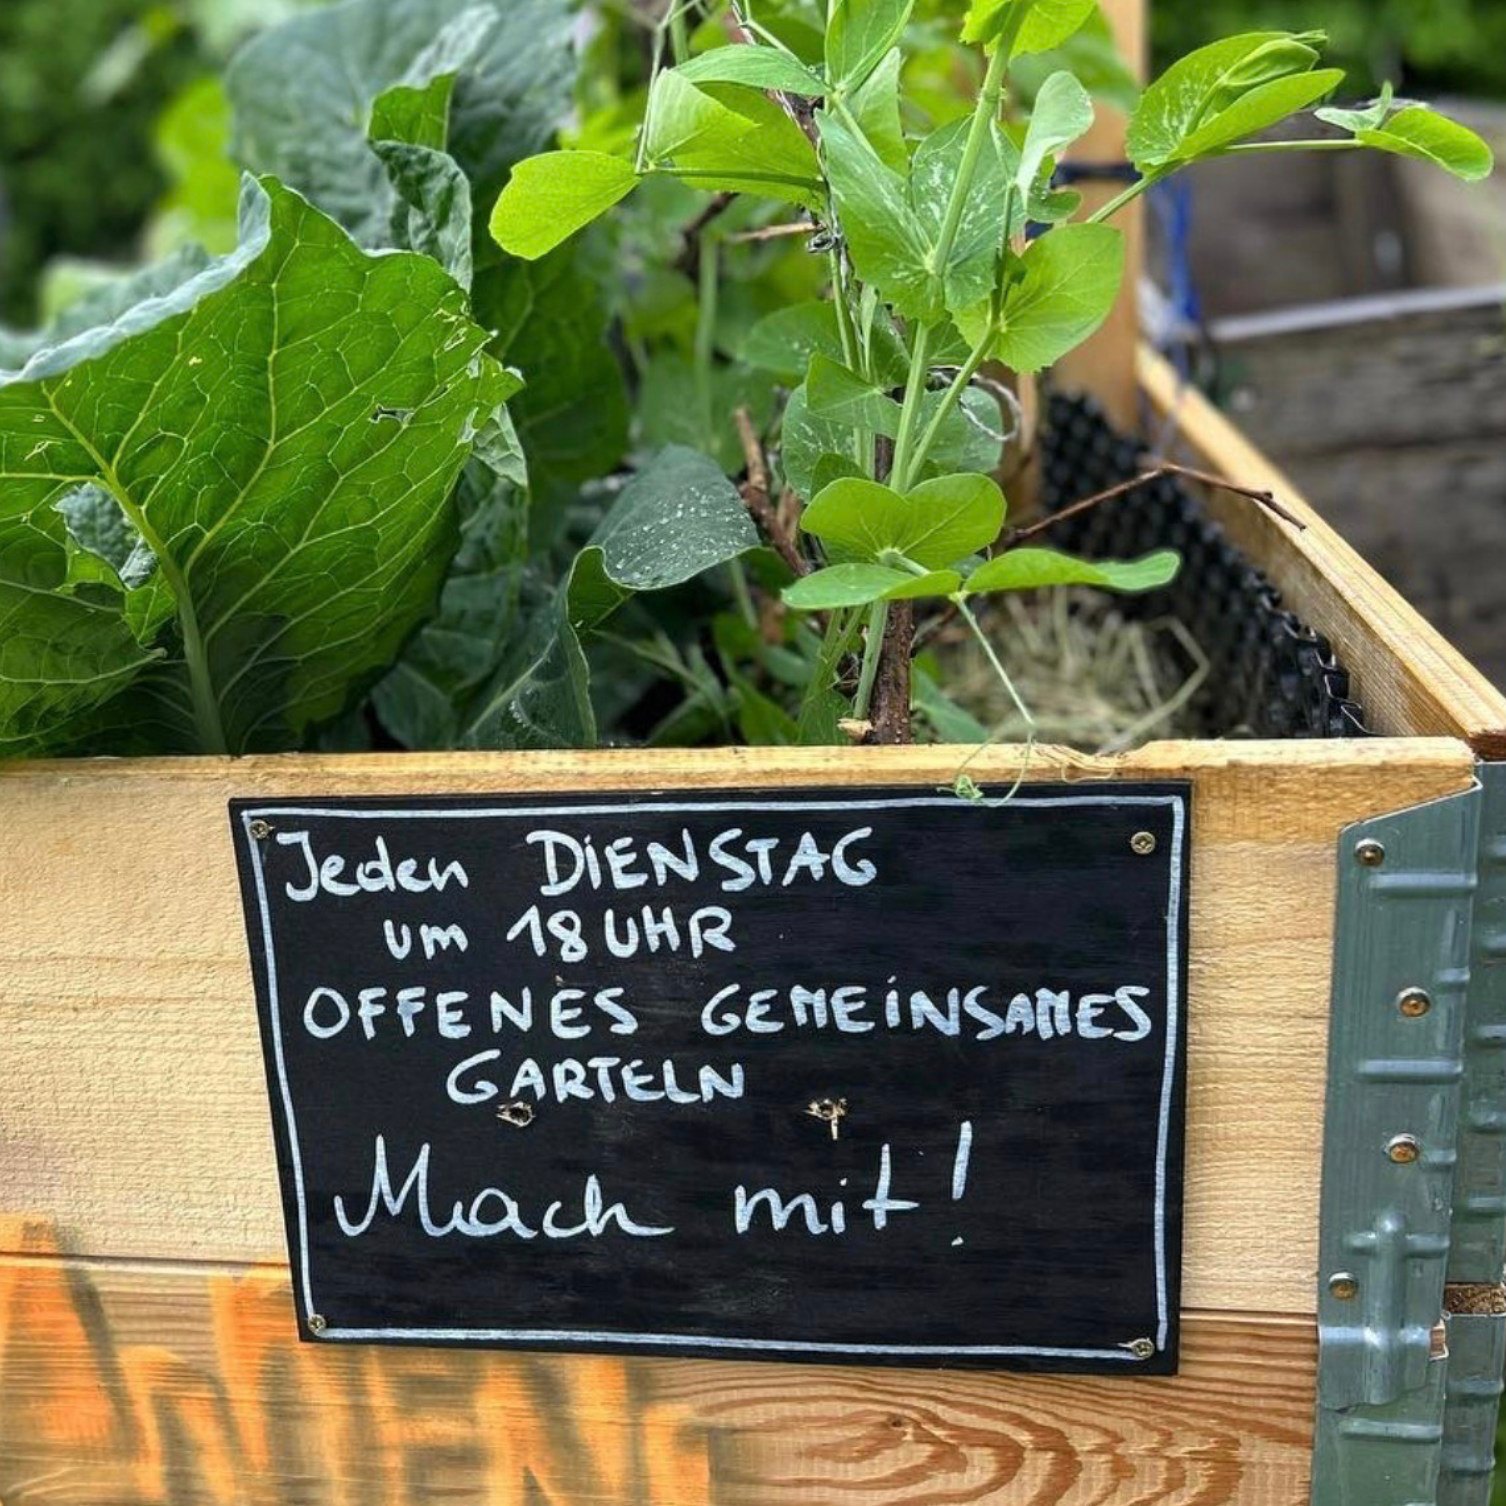 Jeden DiENSTAG
um 18 UHR
OFFENES GEMEiNSAMES
GARTELN
Mach mit!